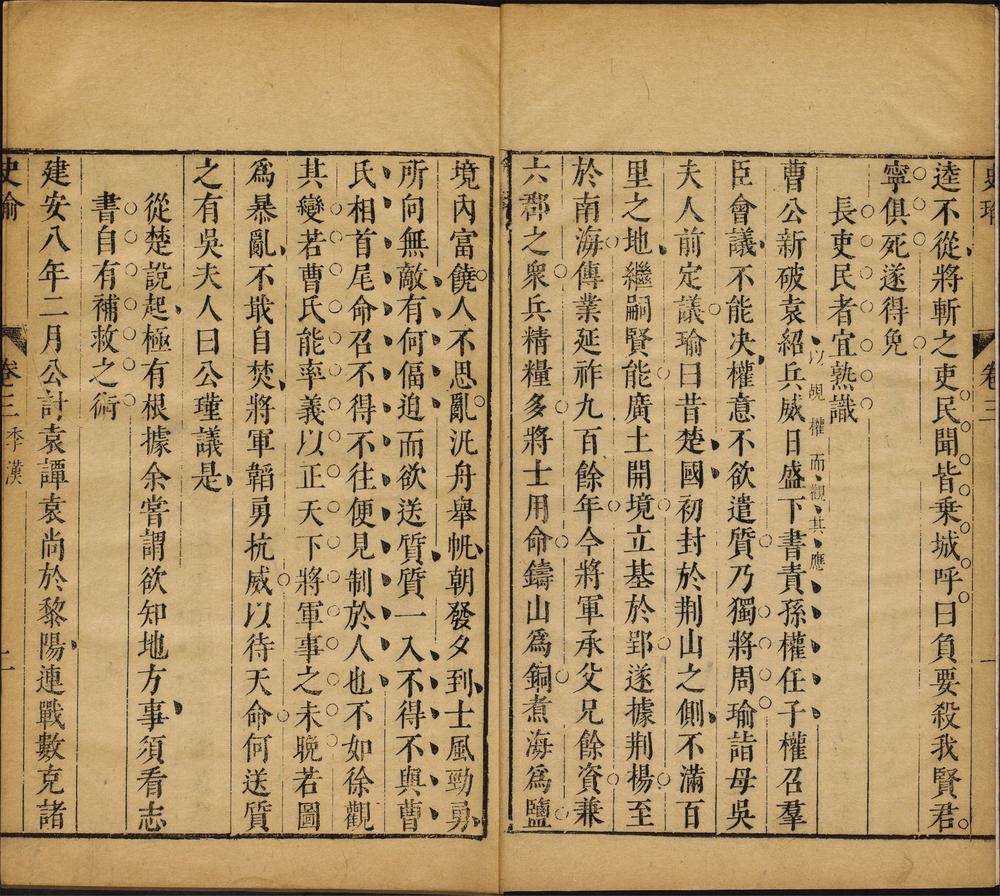 史瑜
卷三
一
逵不從將斬之吏民聞皆乗城呼曰負要殺我賢君
寧俱死遂得免
長吏民者宜熟識
以覘權而觀其應
曹公新破袁紹兵威日盛下書責孫權任子權召羣
臣會議不能决權意不欲遣質乃獨將周瑜詣母吳
夫人前定議瑜曰昔楚國初封於荆山之側不滿百
里之地繼嗣賢能廣土開境立基於郢遂據荆楊至
於南海傳業延祚九百餘年今將軍承父兄餘資兼
六郡之衆兵精糧多將士用命鑄山爲銅煮海爲鹽
境內富饒人不思亂汎舟舉帆朝發夕到士風勁勇
所向無敵有何偪迫而欲送質質一入不得不與曹
氏相首尾命召不得不往便見制於人也不如徐觀
其變若曹氏能率義以正天下將軍事之未晚若圖
爲暴亂不戢自焚將軍韜勇抗威以待天命何送質
之有吳夫人曰公瑾議是
從楚說起極有根據余嘗謂欲知地方事須看志
書自有補救之術
建安八年二月公討袁譚袁尚於黎陽連戰數克諸
史瑜
卷三
季漢
二